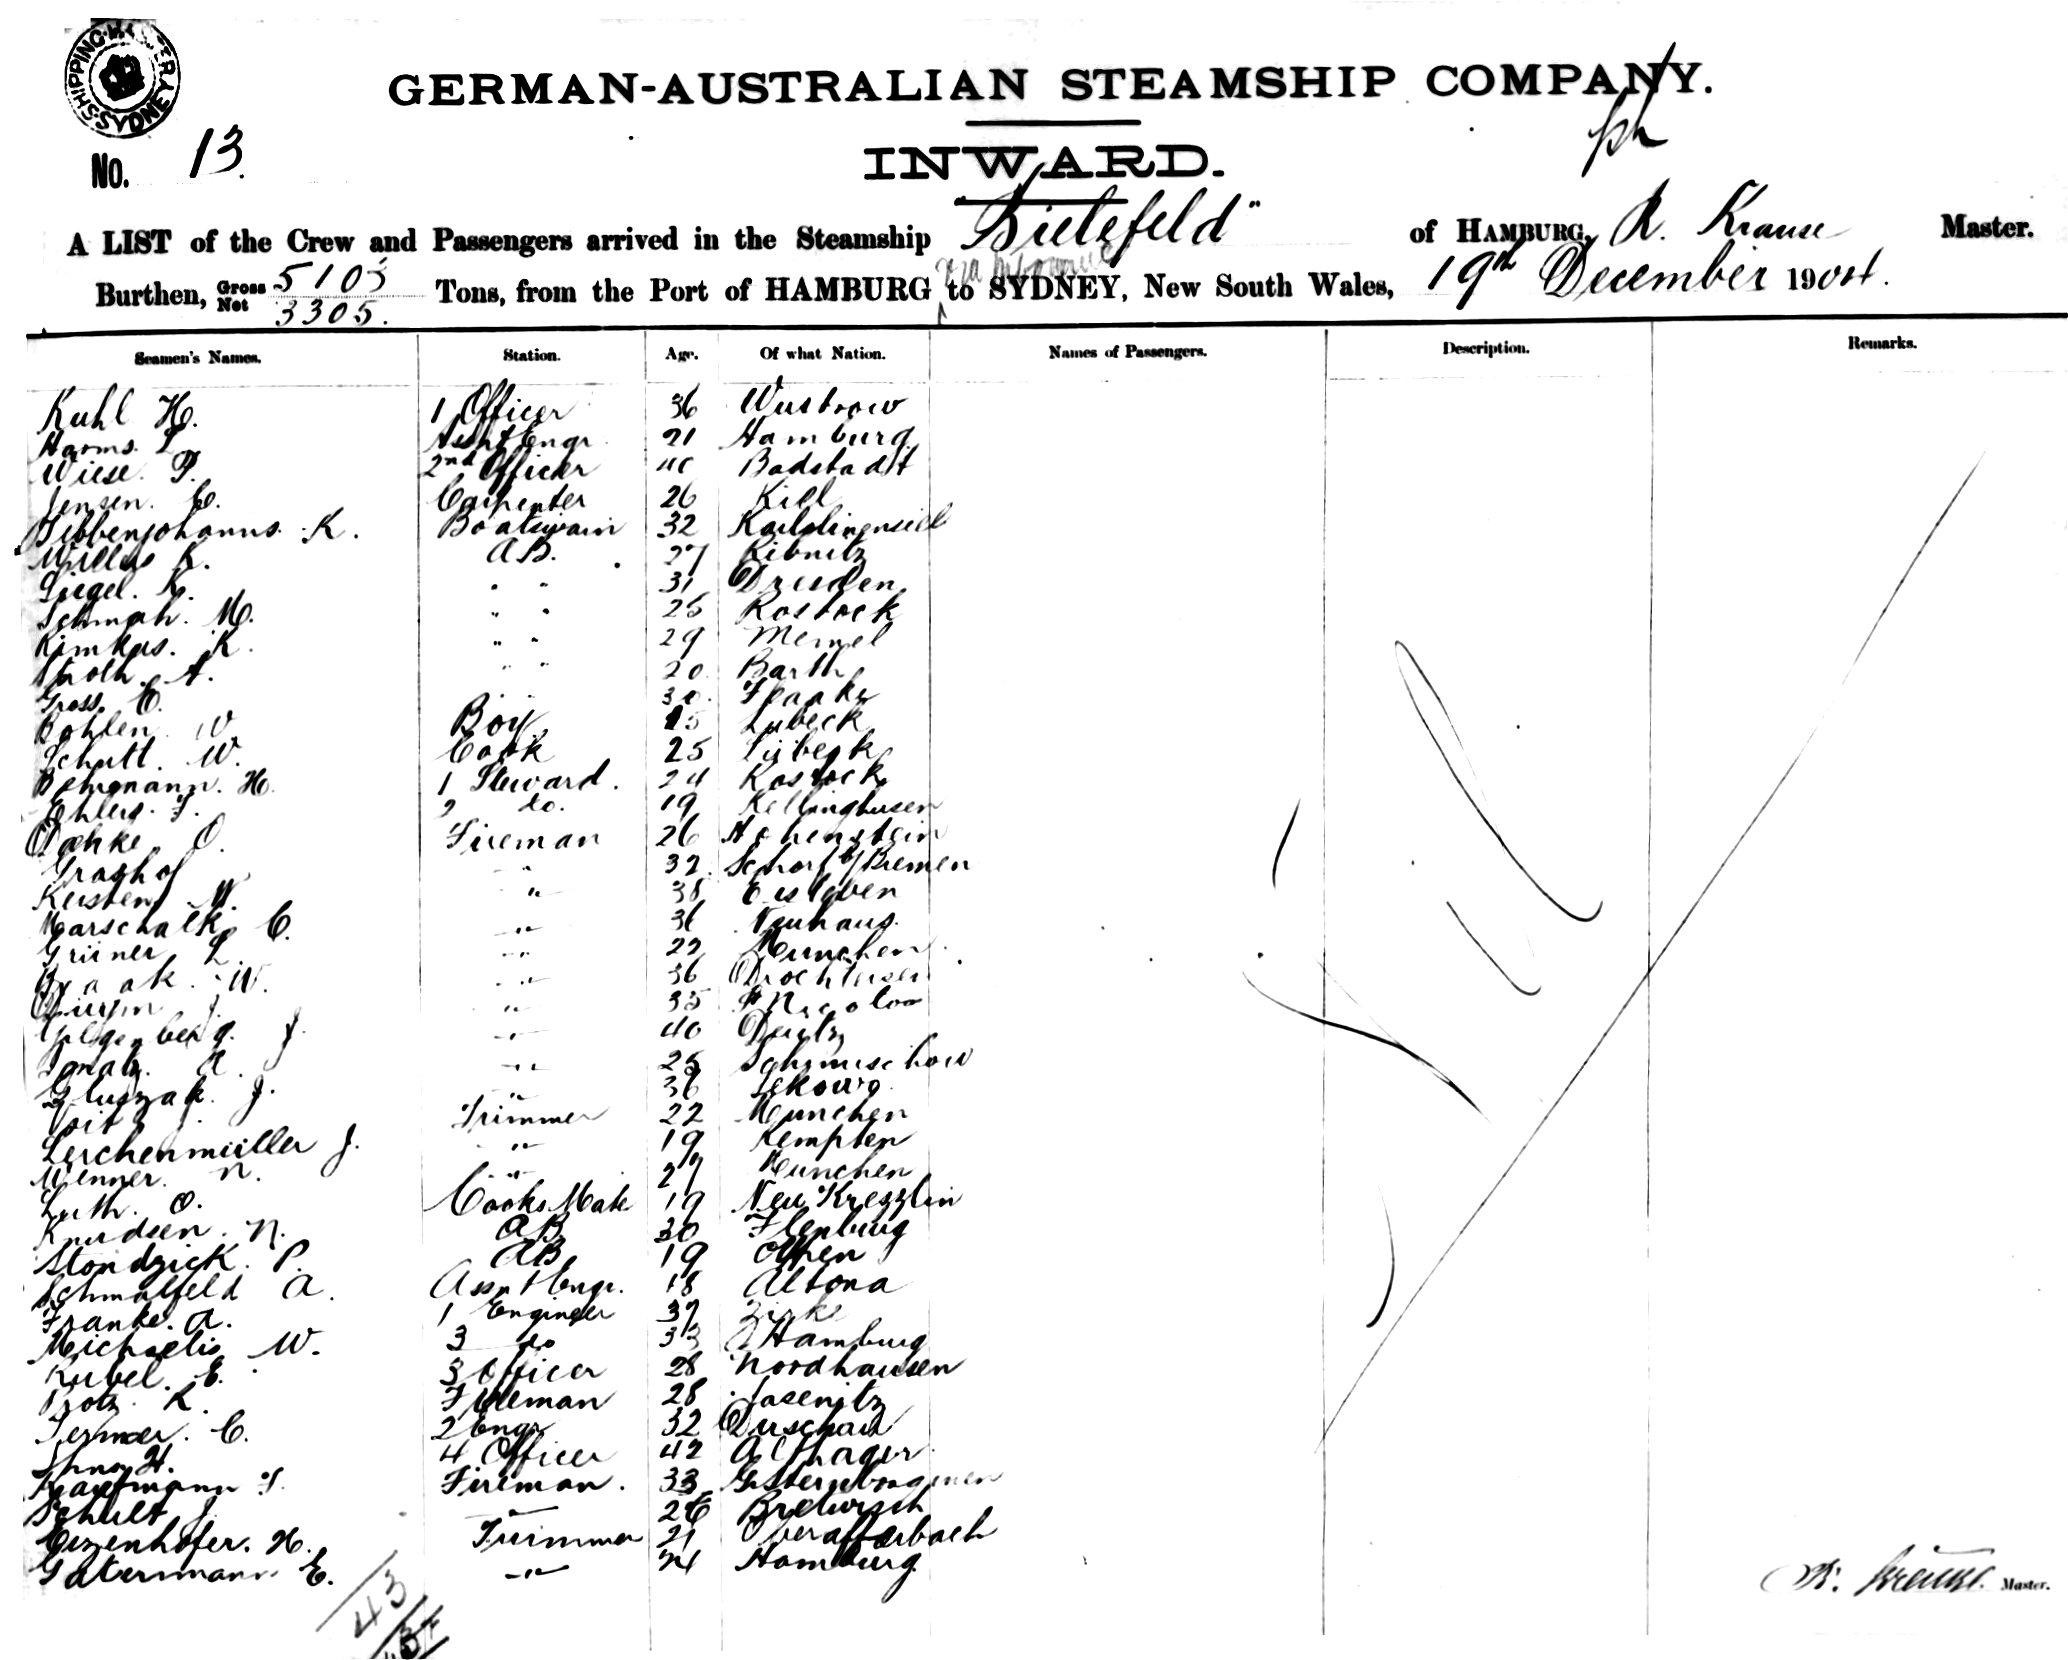 SHIPPING MASTER SYDNEY
GERMAN-AUSTRALIAN STEAMSHIP COMPANY.
No. 13.
INWARD.
A LIST of the Crew and Passengers arrived in the Steamship "Bielefeld" of HAMBURG, R. Krause Master.
Burthen, Gross 5103 Net 3305. Tons, from the Port of HAMBURG via Melbourne to SYDNEY, New South Wales, 19th December 1904.
Seamen's Names. Station. Age. Of what Nation. Names of Passengers. Description. Remarks.
Kuhl H. 1 Officer 36 Wustrow
Harms. L. Asst Engr. 21 Hamburg
Wiese. F. 2nd Officer 40 Bodstadt
Jensen. C. Carpenter 26 Kiel
Tebbenjohanns. K. Boatswain 32
Müller K. A.B. 27 Ribnitz
Siegel. K. " " 31 Dresden
Schmah. M. " " 25 Rostock
Rimkus. K. " " 29 Memel
Stroth. A. " " 20 Barth
Gross. E. " " 30.
Bohlen W. Boy 15 Lubeck
Schutt. W. Cook 25 Lübeck
Bergmann. H. 1 Steward. 24 Rostock
Ehlers. F. 2 do. 19 Kellinghusen
Dahke. O. Fireman 26 Hohenstein
Grashof " 32 b/Bremen
Kersten W. " 38 Eisleben
Marschalk. C. " 36 Neuhaus.
Grüner L. " 22 Munchen
Braak. W. " 36 Drochtersen
J. " 35
J. " 40 Deutz
Ignatz. A. " 25
Gluszak. J. " 36
Voit J. Trimmer 22 Munchen
Lerchenmüller J. " 19 Kempten
Wenner. N. " 27 Munchen
Luth. O. Cooks Mate 19 Neu
Knudsen. N. A.B. 30 Flenburg
Stondzick. P. A.B. 19
Schmalfeld A. Asst Engr. 18 Altona
Franke. A. 1 Engineer 37 Zirke
Michaelis W. 3 do 33 Hamburg
Rubel. E. 3 Officer 28 Nordhausen
Protz. K. Fireman 28 Jasenitz
C. 2 Engr 32 Dirschau
H. 4 Officer 42 Althagen
Kaufmann F. Fireman. 33
Schult J. " 26
Eizenhöfer. H. Trimmer 21 Oberafferbach
Gatermann E. " 24 Hamburg
43
R. Krause. Master.